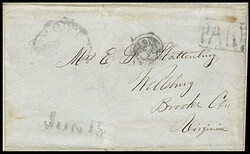 PAID
Mrs E. Plattenburg
Wellsburg
Brooke Co
Virginia
JUN 13